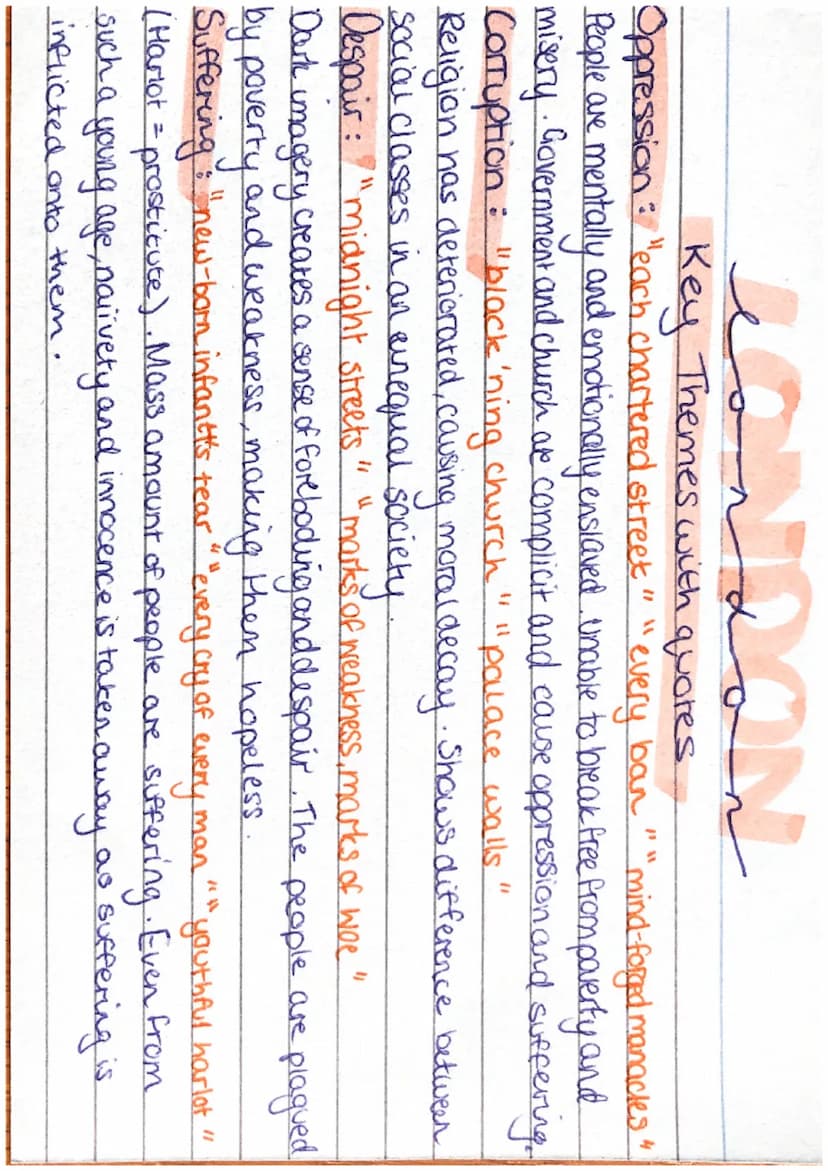 LONDON
London
Key Themes with quotes
Oppression: "each chartered street" "every ban" "mind-forged manacles"
People are mentally and emotionally enslaved. Unable to break free from poverty and
misery. Government and church are complicit and cause oppression and suffering.
Corruption: "black'ning church" "palace walls"
Religion has deteriorated, causing moral decay. Shows difference between
social classes in an unequal society.
Despair: "midnight streets" "marks of weakness, marks of woe"
Dark imagery creates a sense of foreboding and despair. The people are plagued
by poverty and weakness, making them hopeless.
Suffering: "new-born infant's tear" "every cry of every man" "youthful harlot"
(Harlot = prostitute). Mass amount of people are suffering. Even from
such a young age, naiivety and innocence is taken away as suffering is
inflicted onto them.